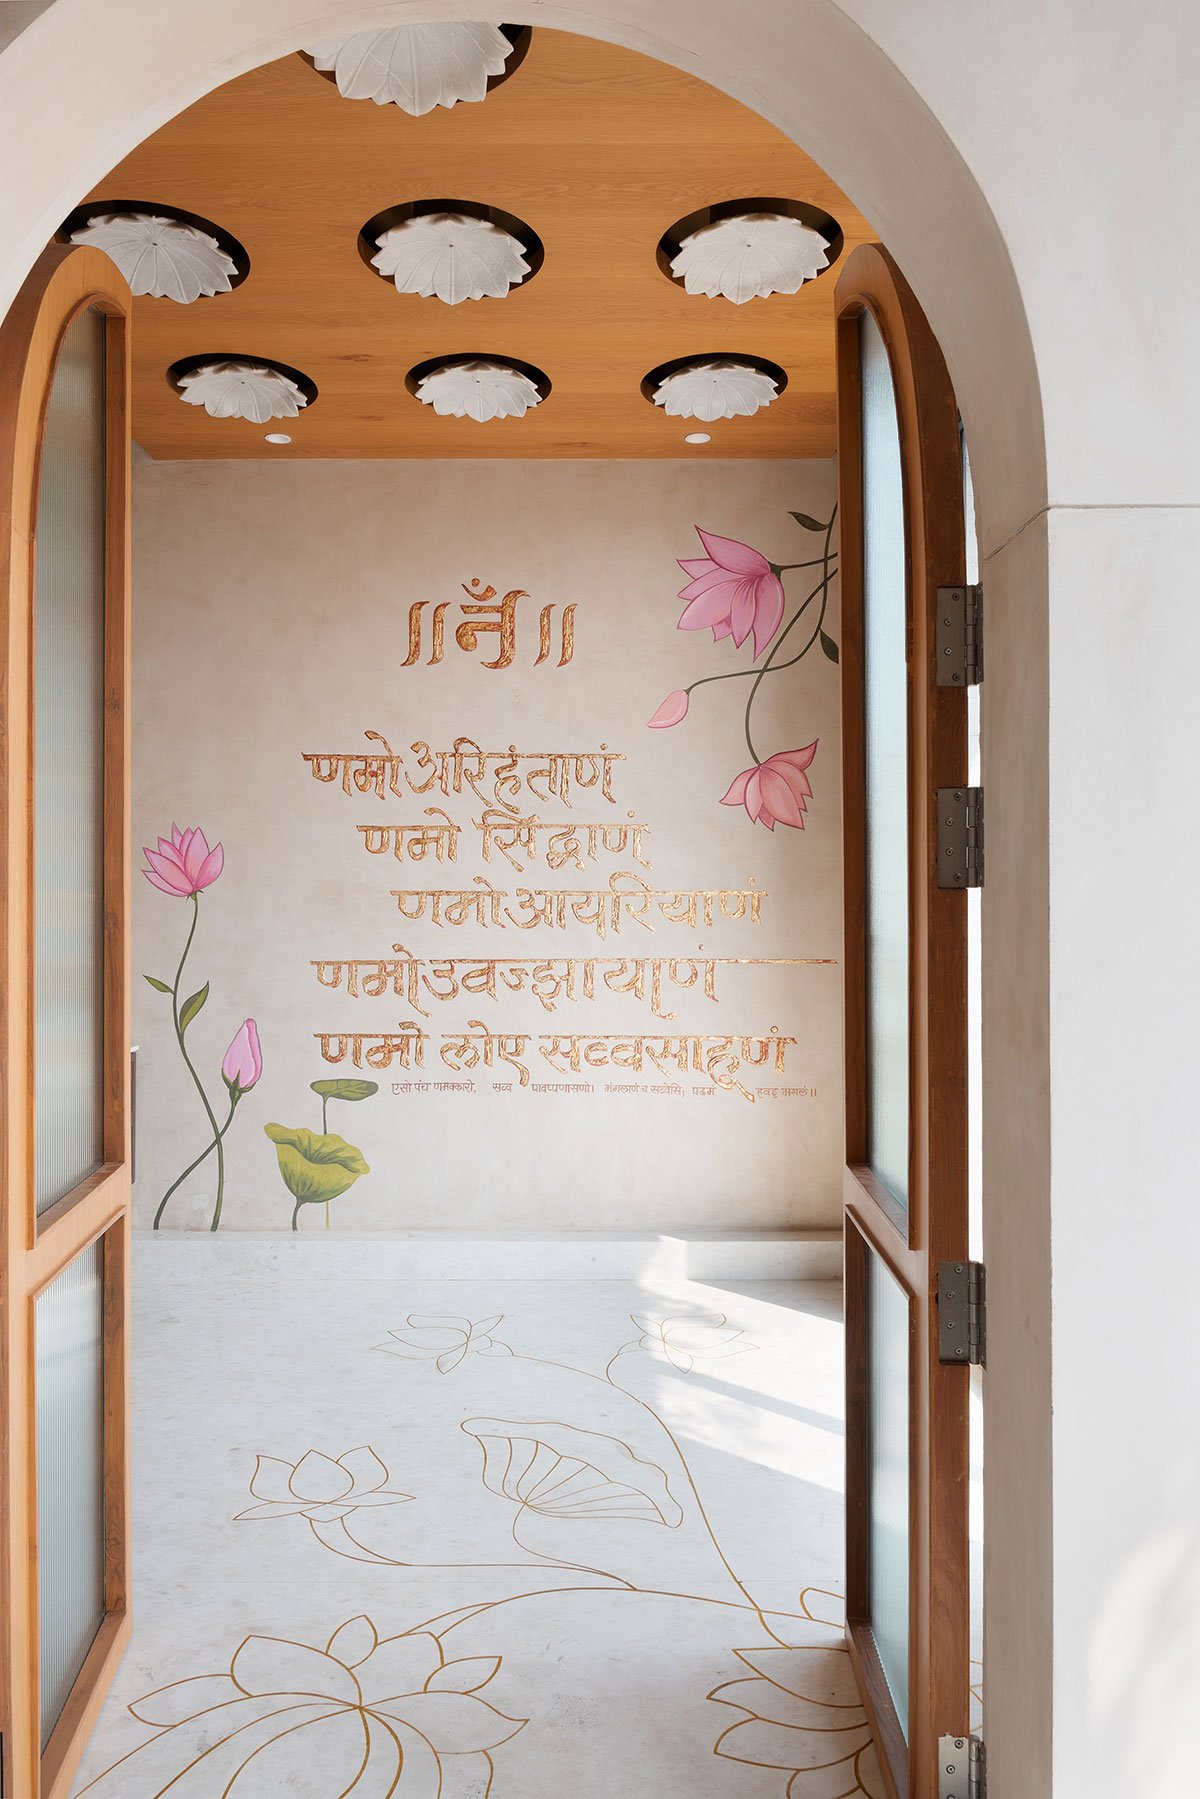 ॥ ꣽ ॥
णमो अरिहंताणं
णमो सिद्धाणं
णमो आयरियाणं
णमो उवज्झायाणं
णमो लोए सव्वसाहूणं
एसो पंच णमक्कारो, सव्व पावप्पणासणो। मंगलाणं च सव्वेसि; पढमं हवइ मंगलं॥